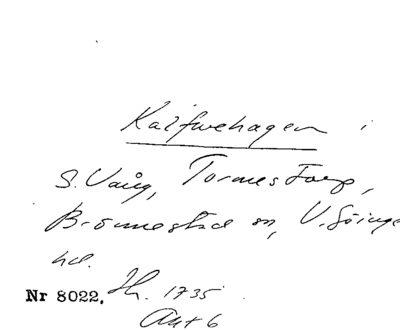 Kalfwehagen i
S. Vång, Tormestorp,
Brönnestad sn, V. Göinge
hd.
Nr 8022. Jh. 1735
Akt 6